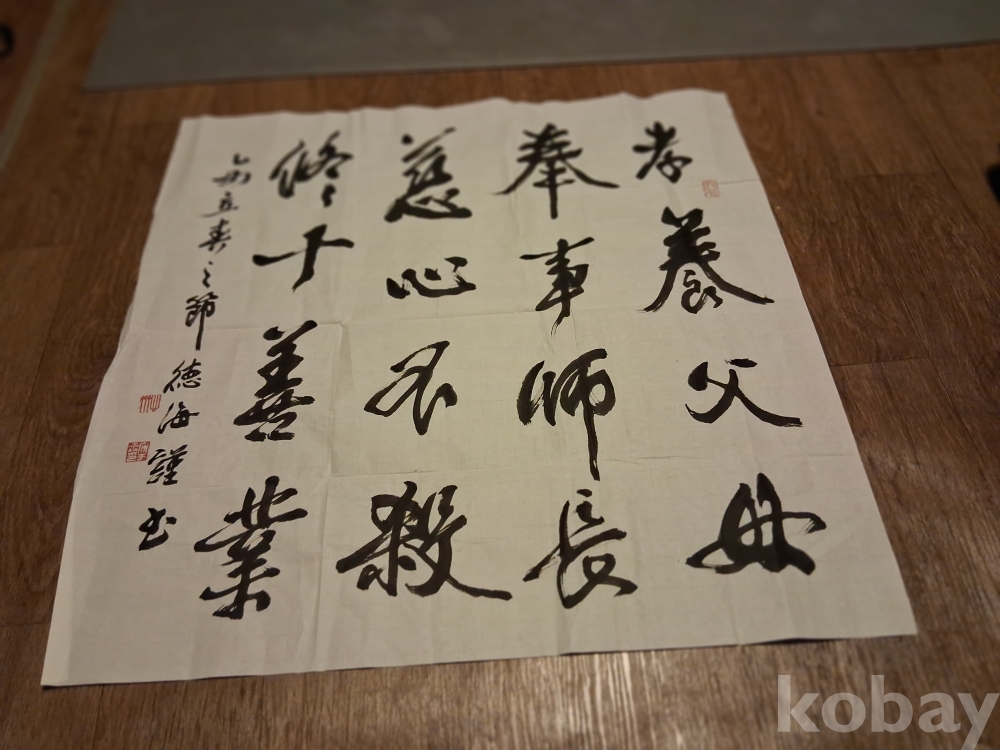 孝養父母
奉事師長
慈心不殺
修十善業
乙酉立春之節
德海謹書
kobay